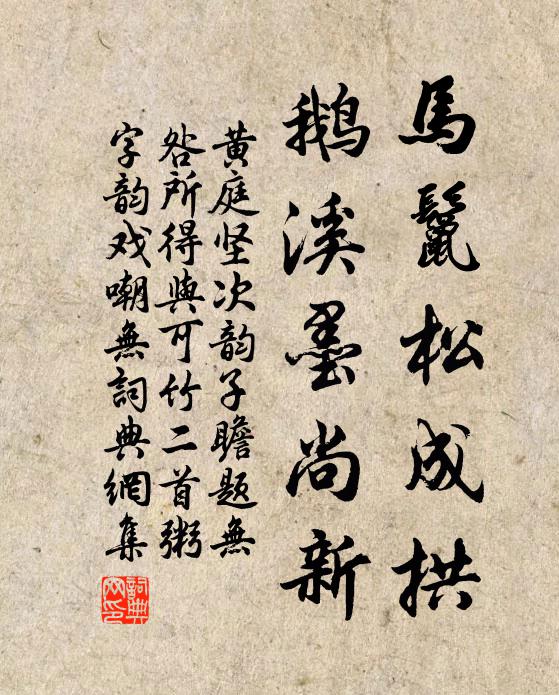 馬鬣松成拱
鵝溪墨尚新
黄庭坚次韵子瞻題無
咎所得與可竹二首粥
字韵戏嘲無詞典網集
詞典網印